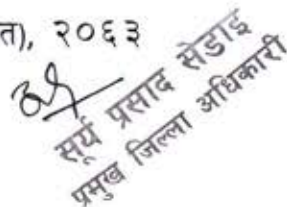 त), २०६३
सूर्य प्रसाद सेडाइ
प्रमुख जिल्ला अधिकारी